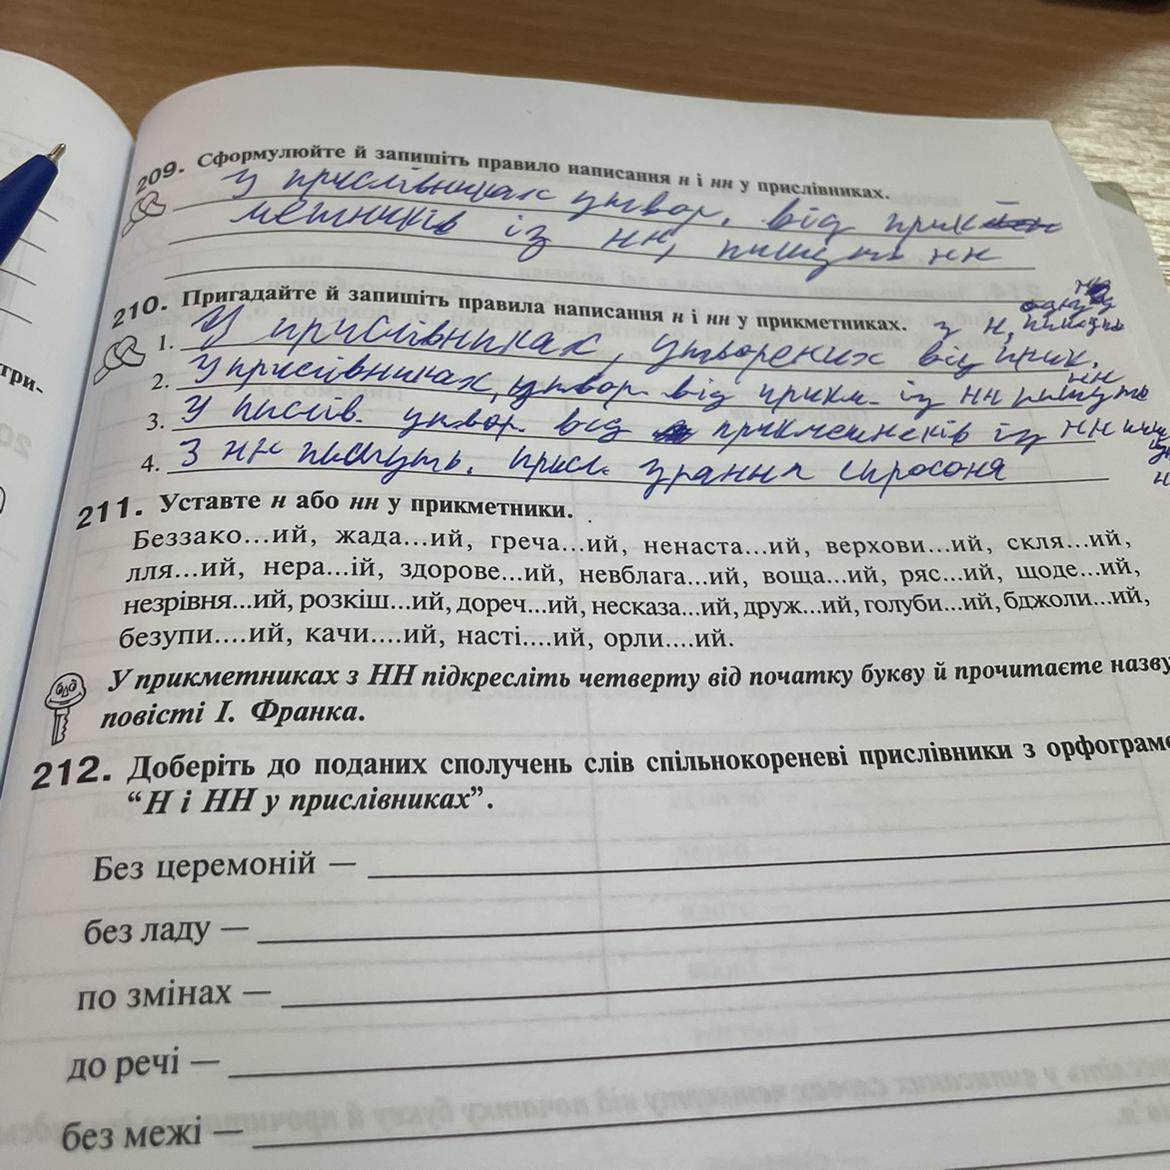 209. Сформулюйте й запишіть правило написання н і нн у прислівниках.
У прислівниках утвор. від прик
метників із нн, пишуть нн
210. Пригадайте й запишіть правила написання н і нн у прикметниках.
з н, пишуть
1. У прислівниках, утворених від прик.
2. У прислівниках, утвор. від прикм. із нн пишуть
нн
3. У писів. утвор. від прикметнеків із нн
4. З нн пишуть. присл. зрання спросоня
211. Уставте н або нн у прикметники.
Беззако...ий, жада...ий, греча...ий, ненаста...ий, верхови...ий, скля...ий,
лля...ий, нера...ій, здорове...ий, невблага...ий, воща...ий, ряс...ий, щоде...ий,
незрівня...ий, розкіш...ий, дореч...ий, несказа...ий, друж...ий, голуби...ий, бджоли...ий,
безупи....ий, качи....ий, насті....ий, орли....ий.
У прикметниках з НН підкресліть четверту від початку букву й прочитаєте назву
повісті І. Франка.
212. Доберіть до поданих сполучень слів спільнокореневі прислівники з орфограмо
“Н і НН у прислівниках”.
Без церемоній —
без ладу —
по змінах —
до речі —
без межі —
три-